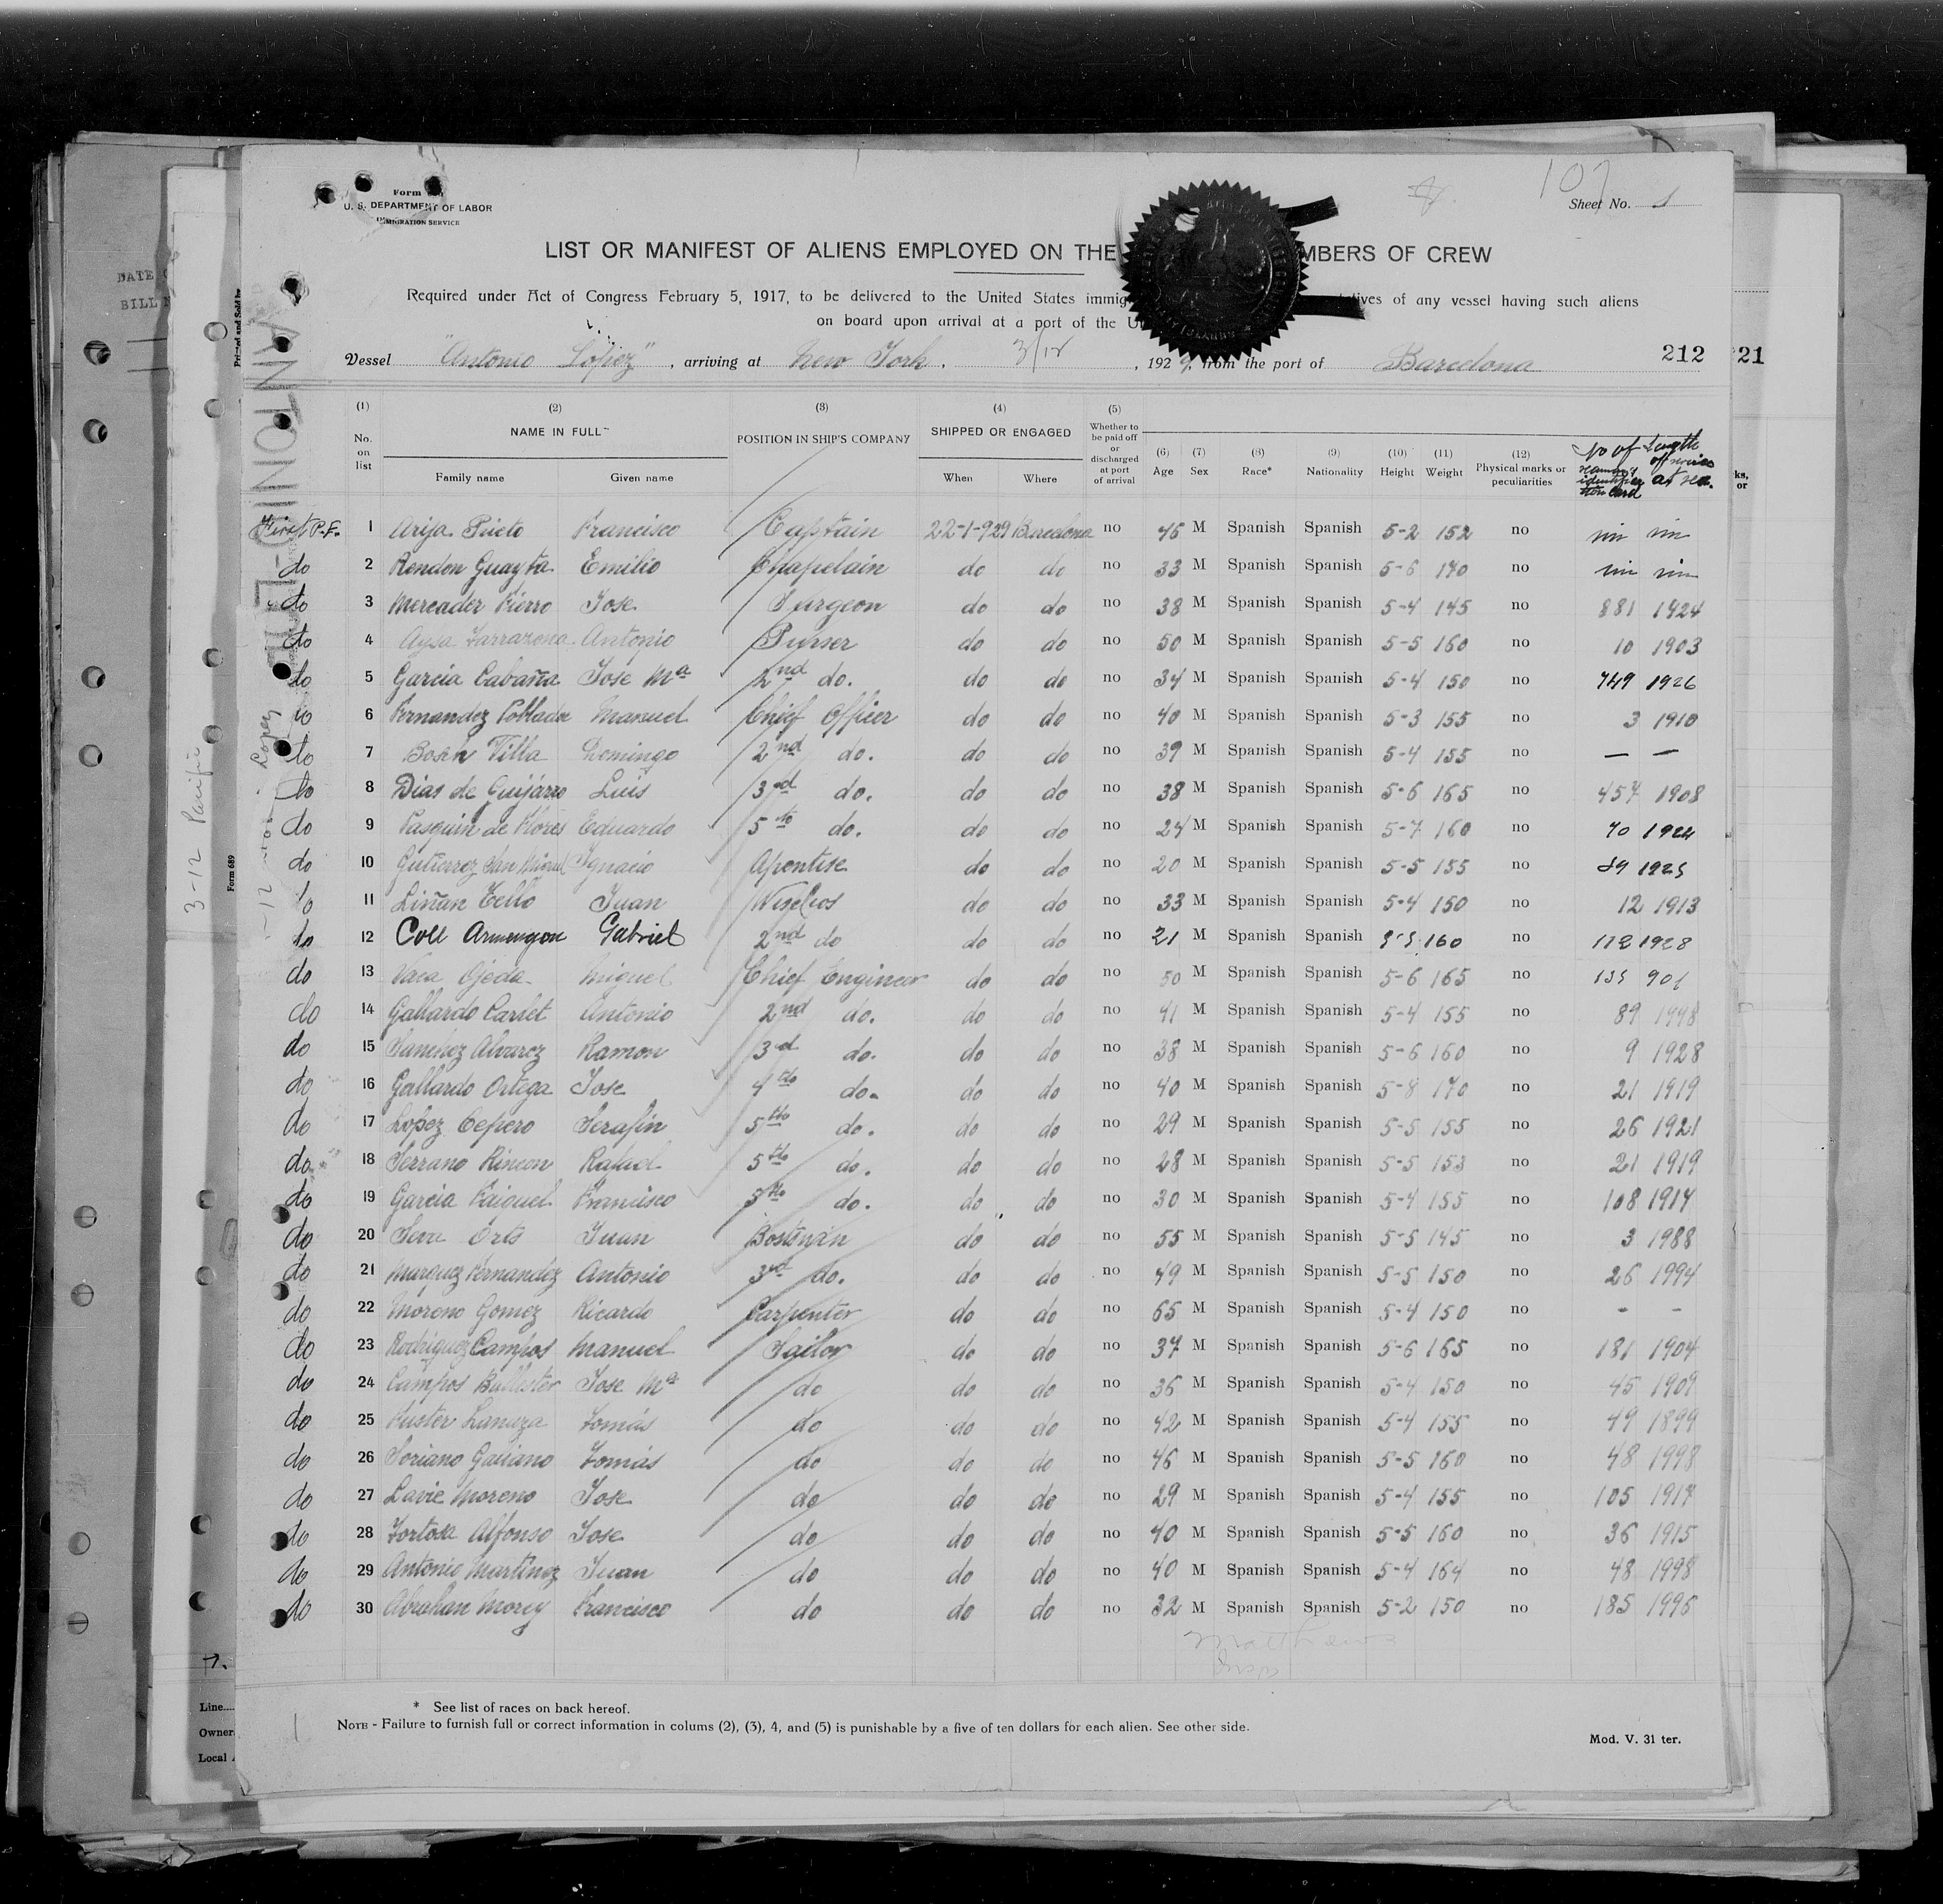 107
Form
U. S. DEPARTMENT OF LABOR
IMMIGRATION SERVICE
Sheet No. 1
LIST OR MANIFEST OF ALIENS EMPLOYED ON THE MBERS OF CREW
Required under Act of Congress February 5, 1917, to be delivered to the United States immig tatives of any vessel having such aliens
on board upon arrival at a port of the U
Vessel "Antonio Lopez", arriving at New York, 3/12, 1929, from the port of Barcelona
212
21
DATE
BILL
Printed and Sold by
ANTONIO LOPEZ
3-12 Pacific
Form 689
(1) No. on list
(2) NAME IN FULL
Family name Given name
(3) POSITION IN SHIP'S COMPANY
(4) SHIPPED OR ENGAGED
When Where
(5) Whether to be paid off or discharged at port of arrival
(6) Age
(7) Sex
(8) Race*
(9) Nationality
(10) Height
(11) Weight
(12) Physical marks or peculiarities
No of seaman's identification card
Length of service at sea.
ks, or
First P.F. 1 Arija Prieto Francisco Captain 22-1-929 Barcelona no 46 M Spanish Spanish 5-2 152 no
do 2 Rendon Guayta Emilio Chapelain do do no 33 M Spanish Spanish 5-6 170 no
do 3 Mercader Fierro Jose Surgeon do do no 38 M Spanish Spanish 5-4 145 no 881 1924
do 4 Aysa Antonio Purser do do no 50 M Spanish Spanish 5-5 160 no 10 1903
do 5 Garcia Cabaña Jose Mª 2nd do. do do no 34 M Spanish Spanish 5-4 150 no 749 1926
do 6 Fernandez Poblador Manuel Chief Officer do do no 40 M Spanish Spanish 5-3 155 no 3 1910
do 7 Bosch Villa Domingo 2nd do. do do no 39 M Spanish Spanish 5-4 155 no — —
do 8 Dias de Guijarro Luis 3rd do. do do no 38 M Spanish Spanish 5-6 165 no 457 1908
do 9 Pasquin de Flores Eduardo 5to do. do do no 24 M Spanish Spanish 5-7 160 no 70 1924
do 10 Gutierrez San Miguel Ignacio Apentise do do no 20 M Spanish Spanish 5-5 155 no 89 1925
do 11 Liñan Tello Juan Wirelros do do no 33 M Spanish Spanish 5-4 150 no 12 1913
do 12 Coll Armengon Gabriel 2nd do do do no 21 M Spanish Spanish 5-5 160 no 1928
do 13 Vaca Ojeda Miguel Chief Engineer do do no 50 M Spanish Spanish 5-6 165 no 135 901
do 14 Gallardo Carlet Antonio 2nd do. do do no 41 M Spanish Spanish 5-4 155 no 89
do 15 Sanchez Alvarez Ramon 3rd do. do do no 38 M Spanish Spanish 5-6 160 no 9 1928
do 16 Gallardo Ortega Jose 4to do. do do no 40 M Spanish Spanish 5-8 170 no 21 1919
do 17 Lopez Cepero Serafin 5tho do. do do no 29 M Spanish Spanish 5-5 155 no 26 1921
do 18 Serrano Rincon Rafael 5tho do. do do no 28 M Spanish Spanish 5-5 153 no 21 1919
do 19 Garcia Raiguel Francisco 5to do. do do no 30 M Spanish Spanish 5-4 155 no 108 1914
do 20 Seva Orts Juan Bostswan do do no 55 M Spanish Spanish 5-5 145 no 3 1988
do 21 Marquez Fernandez Antonio 3rd do. do do no 49 M Spanish Spanish 5-5 150 no 26 1994
do 22 Moreno Gomez Ricardo Carpenter do do no 65 M Spanish Spanish 5-4 150 no - -
do 23 Rodriguez Campos Manuel Sailor do do no 37 M Spanish Spanish 5-6 165 no 181 1904
do 24 Campos Ballester Jose Mª do do do no 36 M Spanish Spanish 5-4 150 no 45 1909
do 25 Fuster Lanuza Tomás do do do no 42 M Spanish Spanish 5-4 155 no 49 1899
do 26 Soriano Galiano Tomás do do do no 46 M Spanish Spanish 5-5 160 no 48 1998
do 27 Lavie Moreno Jose do do do no 29 M Spanish Spanish 5-4 155 no 105 1917
do 28 Tortosa Alfonso Jose do do do no 40 M Spanish Spanish 5-5 160 no 36 1915
do 29 Antonio Martinez Juan do do do no 40 M Spanish Spanish 5-4 164 no 48 1998
do 30 Abrahan Morey Francisco do do do no 32 M Spanish Spanish 5-2 150 no 185 1995
Matthews
Line
Owner
Local
* See list of races on back hereof.
NOTE - Failure to furnish full or correct information in colums (2), (3), 4, and (5) is punishable by a five of ten dollars for each alien. See other side.
Mod. V. 31 ter.